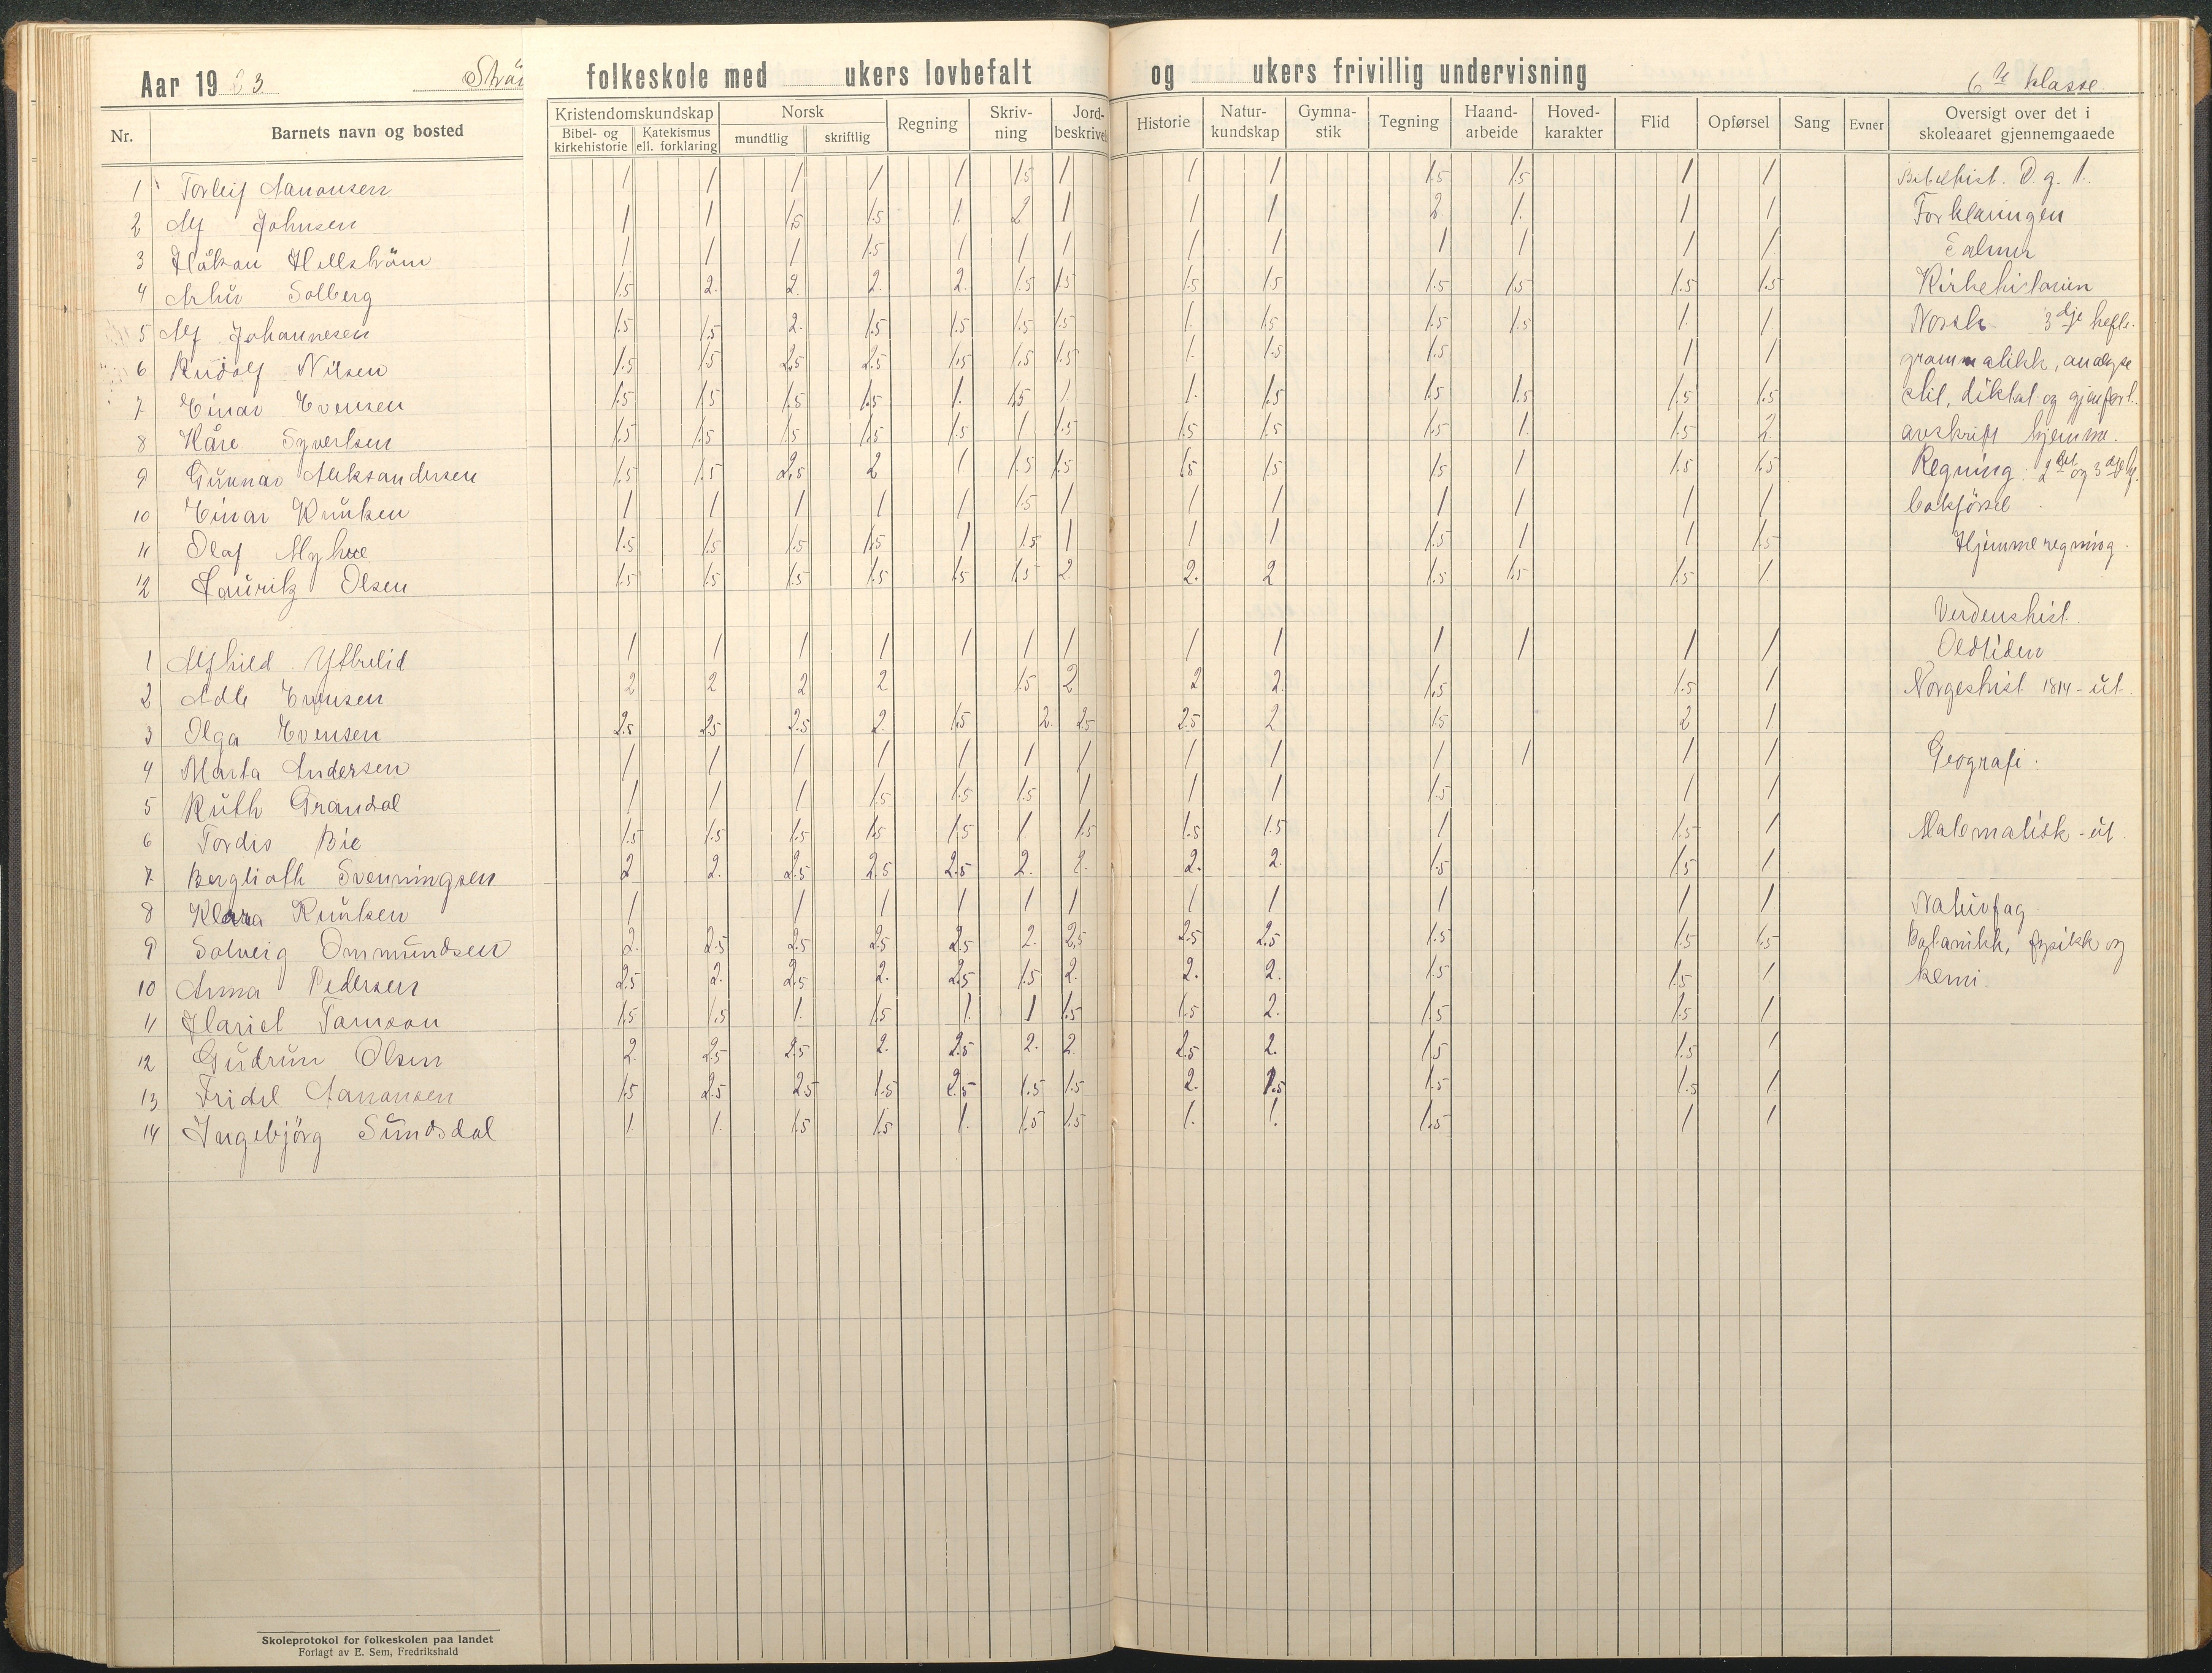 Aar 19 23 folkeskole med ukers lovbefalt og ukers frivillig undervisning 6te klasse.
Nr. Barnets navn og bosted Kristendomskundskap Norsk Regning Skriv-ning Jord-beskrivel Historie Natur-kundskap Gymna-stik Tegning Haand-arbeide Hoved-karakter Flid Opførsel Sang Evner Oversigt over det i skoleaaret gjennemgaaede
Bibel- og kirkehistorie Katekismus ell. forklaring mundtlig skriftlig
1 Torleif Aanonsen 1 1 1 1 1 1.5 1 1 1 1.5 1.5 1 1 Bibelhist. D. g. t.
2 Alf Johnsen 1 1 1.5 1.5 1. 2 1 1 1 2. 1. 1 1 Forklaringen
3 Håkon Hellström 1 1 1 1.5 1 1 1 1 1 1 1 1 1 Salmer
4 Arhur Solberg 1.5 2. 2. 2. 2. 1.5 1.5 1.5 1.5 1.5 1.5 1.5 1.5 Kirkehistorien
5 Alf Johannesen 1.5 1.5 2. 1.5 1.5 1.5 1.5 1. 1.5 1.5 1.5 1. 1 Norsk 3dje hefte.
6 Rudolf Nilsen 1.5 1.5 2.5 2.5 1.5 1.5 1.5 1. 1.5 1.5 1 1 grammatikk, analyse
7. Einar Evensen 1.5 1.5 1.5 1.5 1. 1.5 1. 1. 1.5 1.5 1.5 1.5 1.5 stil, diktat og gjenfort.
8 Kåre Syvertsen 1.5 1.5 1.5 1.5 1.5 1 1.5 1.5 1.5 1.5 1. 1.5 2. avskrift hjemme.
9 Gunnar Aleksandersen 1.5 1.5 2.5 2 1. 1.5 1.5 1.5 1.5 1.5 1 1.5 1.5 Regning: 2det og 3dje h.
10 Einar Knutsen 1 1 1 1 1 1.5 1 1 1 1 1 1 1 bokførsel
11 Olaf Myhre 1.5 1.5 1.5 1.5 1 1.5 1 1 1 1.5 1 1 1.5 Hjemmeregning.
12 Lauritz Olsen 1.5 1.5 1.5 1.5 1.5 1.5 2. 2. 2 1.5 1.5 1.5 1
Verdenshist.
1 Alfhild Ytrelid 1 1 1 1 1 1 1 1 1 1 1 1 1 Oldtiden
2 Adle Evensen 2 2 2 2 1.5 2 2 2. 1.5 1.5 1 Norgeshist 1814 - ut.
3 Olga Evensen 2.5 2.5 2.5 2. 1.5 2. 2.5 2.5 2 1.5 2 1.
4 Marta Andersen 1 1 1 1 1 1 1 1 1 1 1 1 1 Geografi.
5 Ruth Grandal 1 1 1 1.5 1.5 1.5 1 1 1 1.5 1 1
6 Tordis Bie 1.5 1.5 1.5 1.5 1.5 1 1.5 1.5 1.5 1 1.5 1 Matematisk - ut.
7. Berglioth Svenningsen 2 2. 2.5 2.5 2.5 2. 2. 2. 2. 1.5 1.5 1
8 Klara Knutsen 1 1 1 1 1 1 1 1 1 1 1 Naturfag
9 Solveig Ommundsen 2. 2.5 2.5 2.5 2.5 2. 2.5 2.5 2.5 1.5 1.5 1.5 Botanikk, fysikk og
10 Anna Pedersen 2.5 2. 2.5 2. 2.5 1.5 2. 2. 2. 1.5 1.5 1 kemi.
11 Hariet Tamson 1.5 1.5 1. 1.5 1. 1 1.5 1.5 2. 1.5 1.5 1
12 Gudrun Olsen 2. 2.5 2.5 2. 2.5 2. 2. 2.5 2. 1.5 1.5 1
13 Fridel Aanonsen 1.5 2.5 2.5 1.5 2.5 1.5 1.5 2. 1.5 1.5 1.5 1
14 Ingebjörg Sundsdal 1 1. 1.5 1.5 1. 1.5 1.5 1. 1. 1.5 1 1
Skoleprotokol for folkeskolen paa landet
Forlagt av E. Sem, Fredrikshald